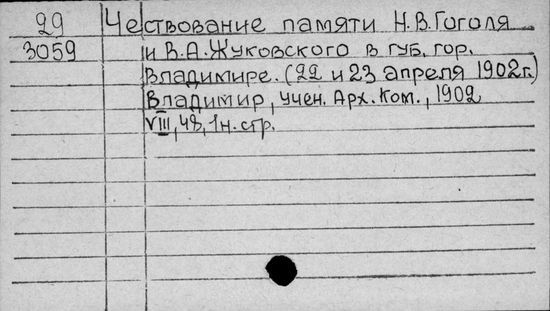 29 Чествование памяти Н.В.Гоголя
3059 и В.А.Жуковского в губ. гор.
Владимире. (22 и 23 апреля 1902г.)
Владимир, учен. Арх. Ком., 1902
VIII, 48, 1н. стр.